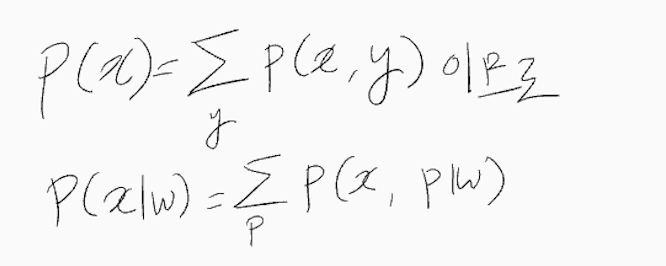 P(x)=∑_y P(x,y) 이므로
P(x|w)=∑_P P(x, P|w)